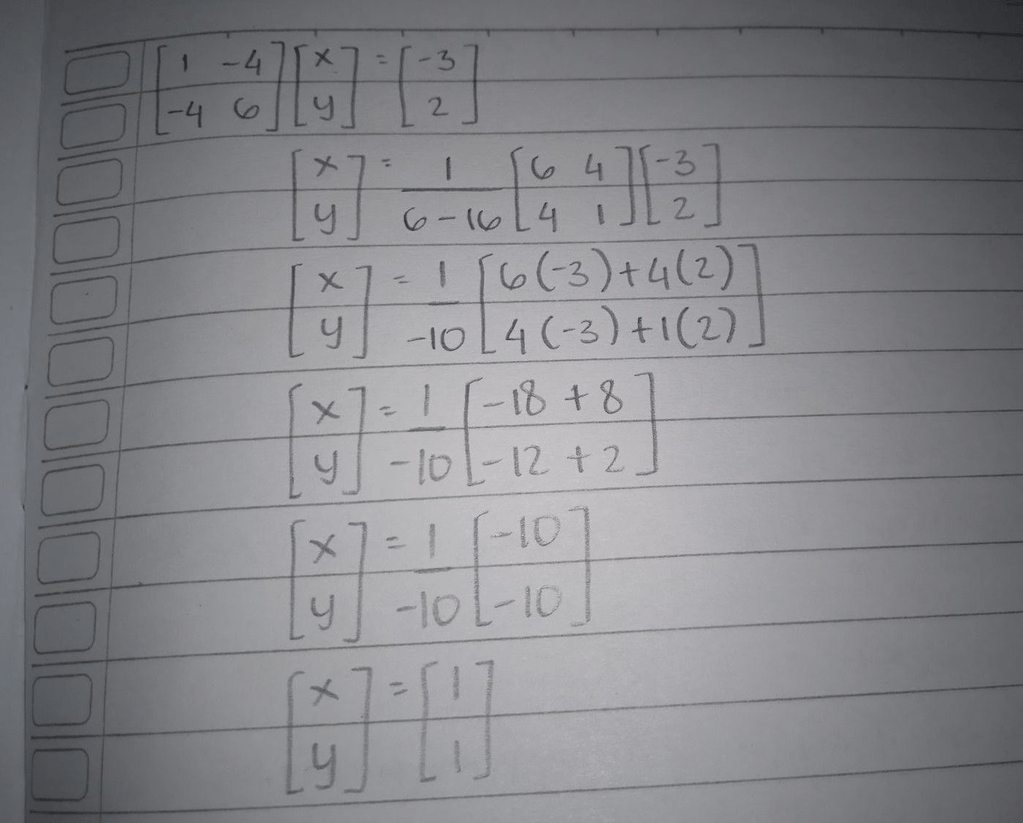 [1 -4; -4 6][x; y] = [-3; 2]
[x; y] = 1/(6-16) [6 4; 4 1][-3; 2]
[x; y] = 1/-10 [6(-3)+4(2); 4(-3)+1(2)]
[x; y] = 1/-10 [-18+8; -12+2]
[x; y] = 1/-10 [-10; -10]
[x; y] = [1; 1]